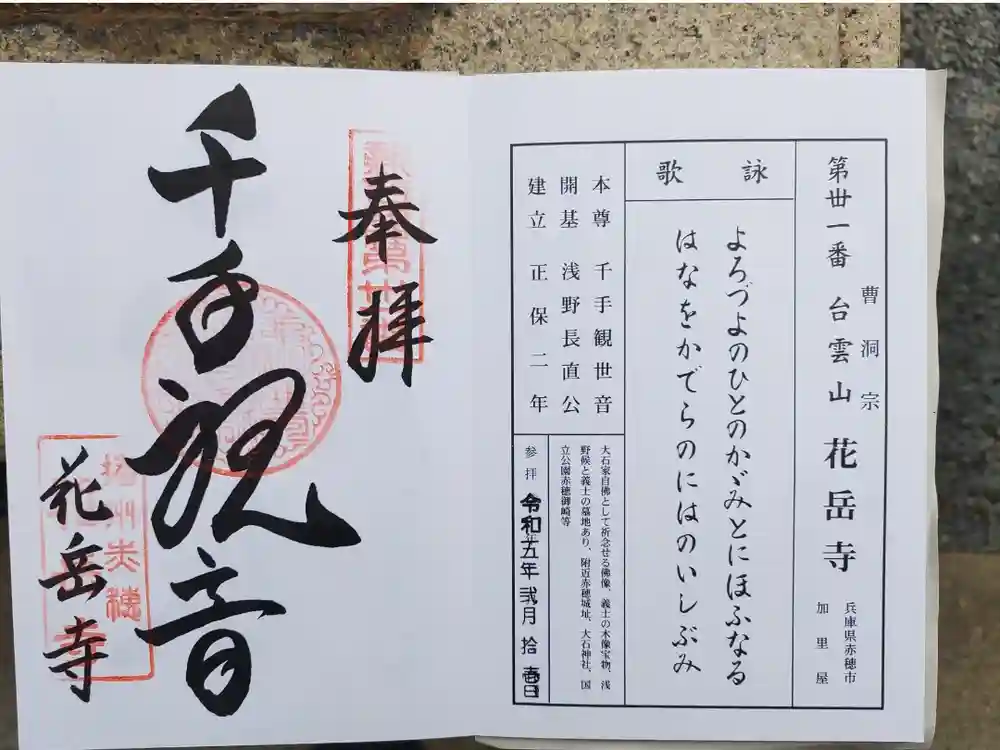 第丗一番 台雲山 花岳寺
曹洞宗
兵庫県赤穂市
加里屋
詠歌
よろづよのひとのかゞみとにほふなる
はなをかでらのにはのいしぶみ
本尊 千手観世音
開基 浅野長直公
建立 正保二年
大石家自佛として祈念せる佛像、義士の木像宝物、浅
野候と義士の墓地あり、附近赤穂城址、大石神社、国
立公園赤穂御崎等
参拝 令和五年 弐月 拾壱日
奉拝
千手観音
花岳寺
播州赤穂